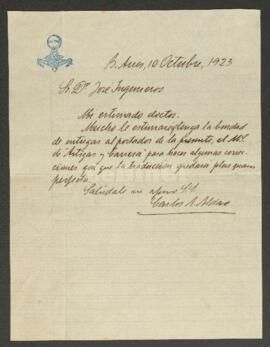 B. Aires, 10 Octubre, 1923
Sr. Dr. José Ingenieros
Mi estimado doctor:
Mucho le estimaré tenga la bondad
de entregar al portador de la presente, el M.S.
de "Artigas y Carrera" para hacer algunas correc-
ciones, que la traducción quedará plus quam
perfecta.
Salúdale su afmo S.S.
Carlos A. Aldao